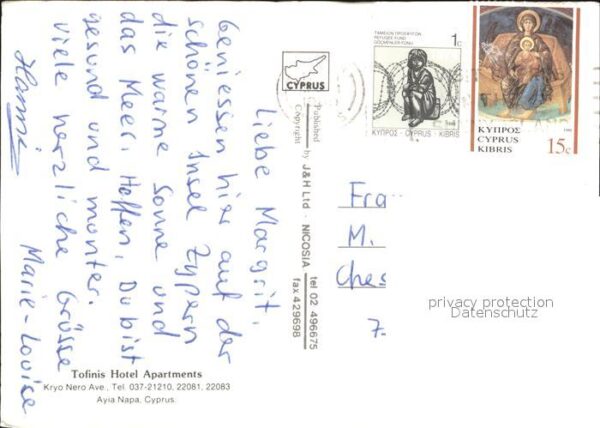 Liebe Margrit,
Geniessen hier auf der
schönen Insel Zypern
die warme Sonne und
das Meer. Hoffen, Du bist
gesund und munter.
Viele herzliche Grüsse
Marie-Louise
Hanni
CYPRUS
Published
Copyright by J&H Ltd - NICOSIA tel 02 496675
fax 429698
1c
ΤΑΜΕΙΟΝ ΠΡΟΣΦΥΓΩΝ
REFUGEE FUND
GÖÇMENLER FONU
ΚΥΠΡΟΣ - CYPRUS - KIBRIS
ΚΥΠΡΟΣ
CYPRUS
KIBRIS 15c
Fra
M.
Ches
7.
privacy protection
Datenschutz
Tofinis Hotel Apartments
Kryo Nero Ave., Tel. 037-21210, 22081, 22083
Ayia Napa, Cyprus.